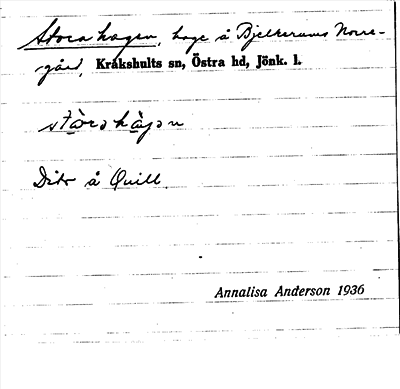 Stora hagen, hage å Bjelkerums Norre-
gård, Kråkshults sn, Östra hd, Jönk. l.
stòrahàgən
Dito å Quill.
Annalisa Anderson 1936